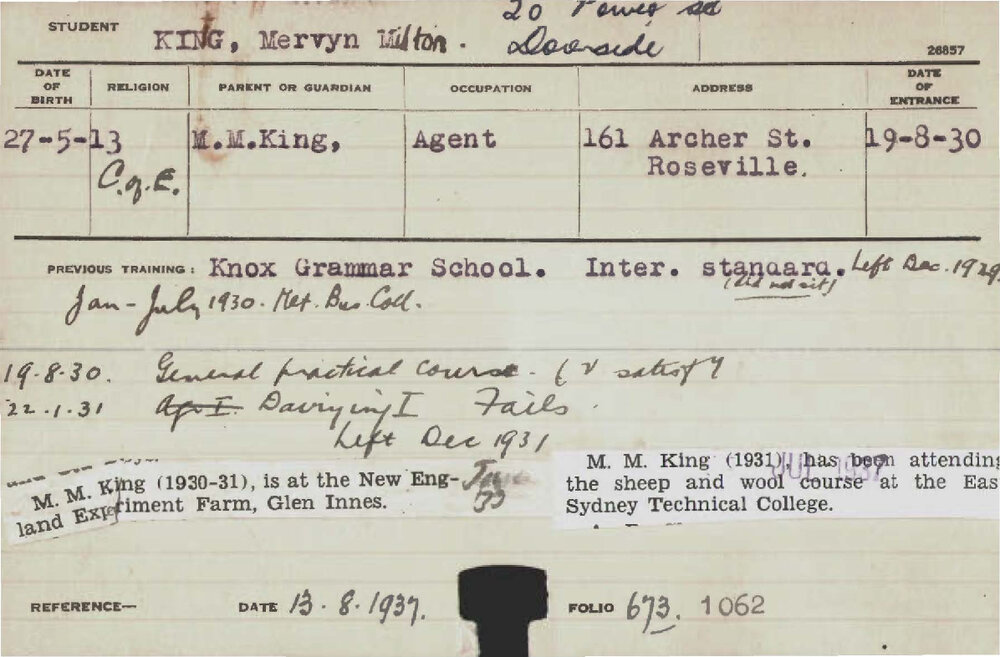 20 Power st
STUDENT KING, Mervyn Milton. Doonside
26857
DATE OF BIRTH RELIGION PARENT OR GUARDIAN OCCUPATION ADDRESS DATE OF ENTRANCE
27-5-13 M.M.King, Agent 161 Archer St. 19-8-30
C.of.E. Roseville.
PREVIOUS TRAINING: Knox Grammar School. Inter. standard. Left Dec. 1929
(did not sit)
Jan - July 1930. Met. Bus Coll.
19.8.30. General practical course. (v satisfy)
22.1.31 Ag. I. Dairying I Fails.
Left Dec 1931
M. M. King (1930-31), is at the New Eng-
land Experiment Farm, Glen Innes.
33
M. M. King (1931), has been attending
the sheep and wool course at the Eas
Sydney Technical College.
1937
REFERENCE— DATE 13.8.1937. FOLIO 673. 1062